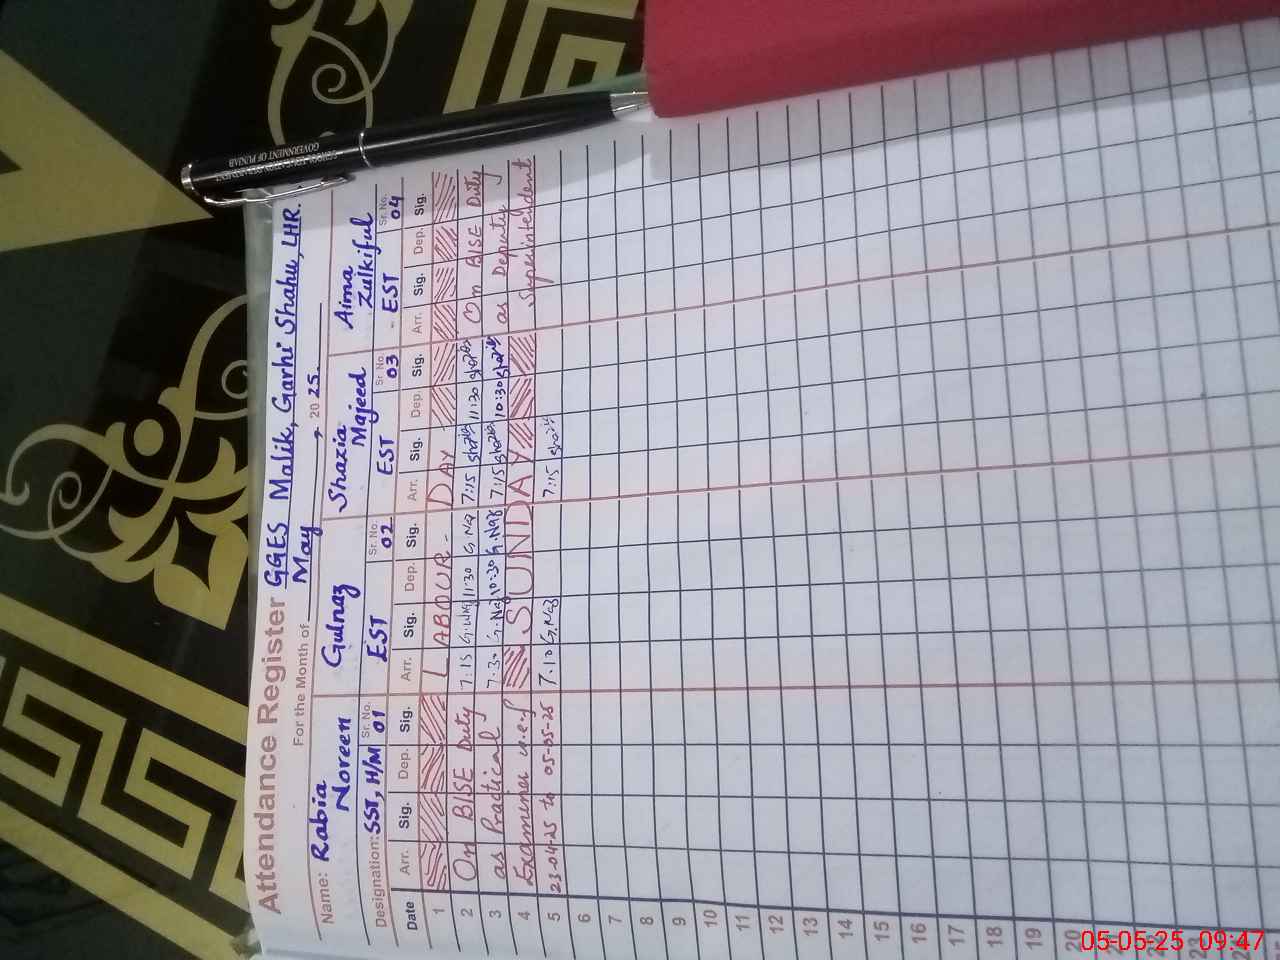 Attendance Register GGES Malik, Garhi Shahu, LHR.
For the Month of May, 2025.
Name: Rabia Noreen
Gulnaz
Shazia Majeed
Aima Zulkiful
Designation: SST, H/M Sr. No. 01
EST Sr. No. 02
EST Sr. No. 03
EST Sr. No. 04
Date Arr. Sig. Dep. Sig. Arr. Sig. Dep. Sig. Arr. Sig. Dep. Sig. Arr. Sig. Dep. Sig.
1 LABOUR - DAY
2 On BISE Duty 7:15 11:30 G.Naz 7:15 11:30 On BISE Duty
3 as Practical 7:30 G.Naz 10:30 G.Naz 7:15 10:30 as Deputy
4 Examiner w.e.f SUNDAY Superintendent
5 23-04-25 to 05-05-25 7:10 G.Naz 7:15
6
7
8
9
10
11
12
13
14
15
16
17
18
19
20
21
22
23
SCHOOL EDUCATION DEPARTMENT
GOVERNMENT OF PUNJAB
05-05-25 09:47